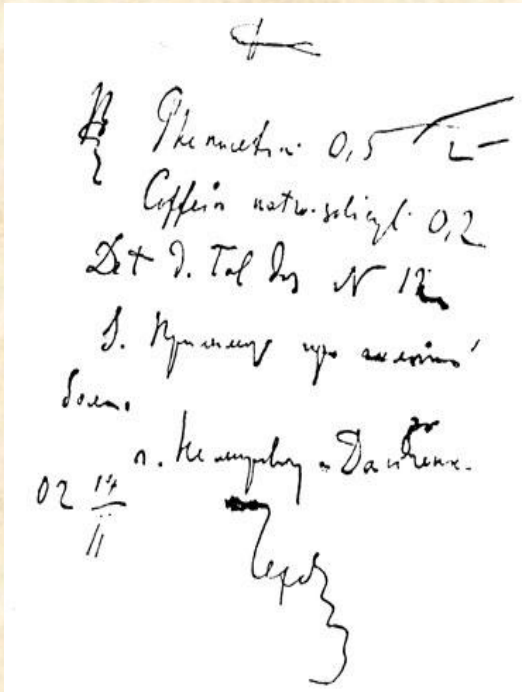 Phenacetini 0,5
Coffein natro-salicyl. 0,2
D. t. d. Tal Dos N 12
S. При головной
боли.
г. Немировичу-Данченко.
02 14/II
Чехов